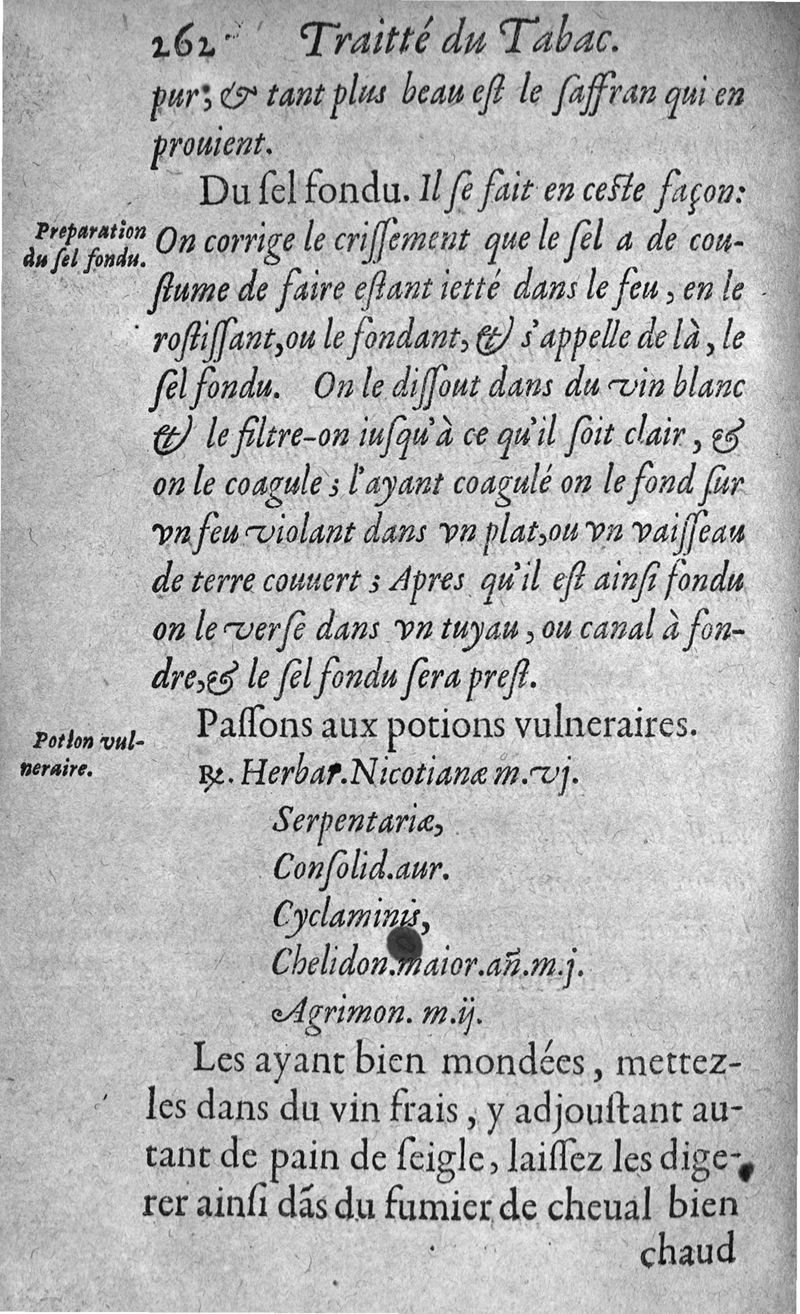 262 Traitté du Tabac.
pur; & tant plus beau eſt le ſaffran qui en
prouient.
Du ſel fondu. Il ſe fait en ceſte façon:
Preparation
du ſel fondu.
On corrige le criſſement que le ſel a de cou-
ſtume de faire eſtant ietté dans le feu, en le
roſtiſſant, ou le fondant, & s'appelle de là, le
ſel fondu. On le diſſout dans du vin blanc
& le filtre-on iuſqu'à ce qu'il ſoit clair, &
on le coagule; l'ayant coagulé on le fond ſur
vn feu violant dans vn plat, ou vn vaiſſeau
de terre couuert; Apres qu'il eſt ainſi fondu
on le verſe dans vn tuyau, ou canal à fon-
dre, & le ſel fondu ſera preſt.
Paſſons aux potions vulneraires.
Potion vul-
neraire.
℞. Herbar. Nicotianæ m.vj.
Serpentariæ,
Conſolid. aur.
Cyclaminis,
Chelidon. maior. añ. m.j.
Agrimon. m.ij.
Les ayant bien mondées, mettez-
les dans du vin frais, y adjouſtant au-
tant de pain de ſeigle, laiſſez les dige-
rer ainſi dãs du fumier de cheual bien
chaud